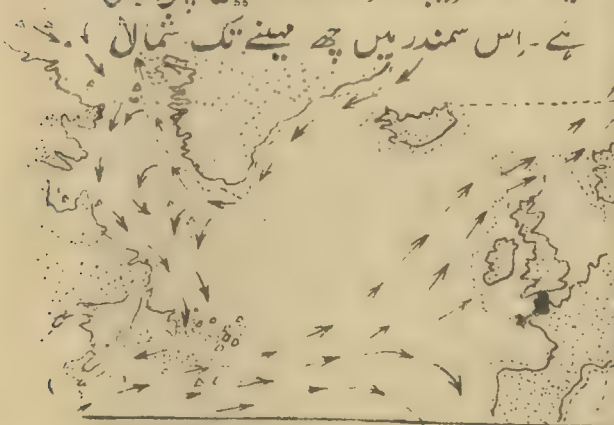 ہے ۔ اِس سمندر میں چھ مہینے تک شمال